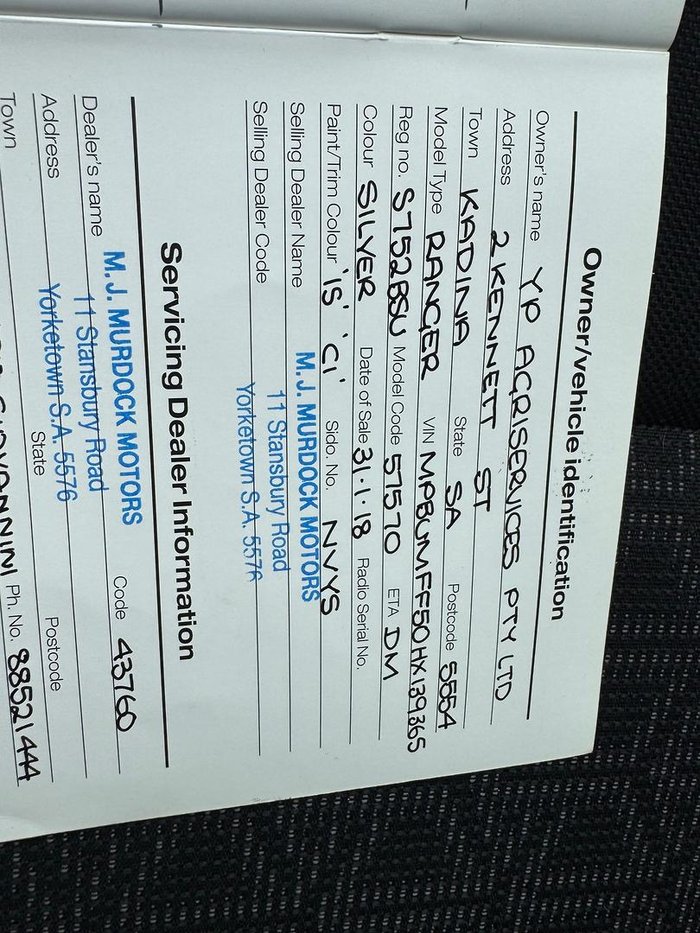 Owner/vehicle identification
Owner's name YP AGRISERVICES PTY LTD
Address 2 KENNETT ST
Town KADINA State SA Postcode 5554
Model Type RANGER VIN MPBUMFF50HX139365
Reg no. S752BSU Model Code 57570 ETA DM
Colour SILVER Date of Sale 31·1·18 Radio Serial No.
Paint/Trim Colour 'IS' 'CI' Sido. No. NVYS
Selling Dealer Name M. J. MURDOCK MOTORS
11 Stansbury Road
Selling Dealer Code Yorketown S.A. 5576
Servicing Dealer Information
Dealer's name M. J. MURDOCK MOTORS Code 43760
11 Stansbury Road
Address Yorketown S.A. 5576
Town State Postcode
Ph. No. 88521444